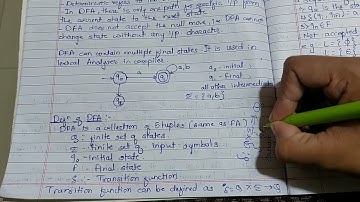 - Deterministic refers to
- In DFA, there is
path for specific I/P from
the current state to the next state.
- DFA does not accept the null move, i.e. DFA cannot
change state without any I/P character.
DFA can contain multiple final states. It is used in
Lexical Analysis in compiler
a
a,b
q0
q1
b
q2
q0 - initial
q1 - final
all other intermediate
Σ = {a,b}
Defn of DFA :-
DFA is a collection of 5 tuples (same as FA)
Q : finite set of states.
Σ : finite set of input symbols.
q0 : initial state
F : final state
δ :- Transition function
Transition function can be defined as δ = Q × Σ → Q
Not accepted